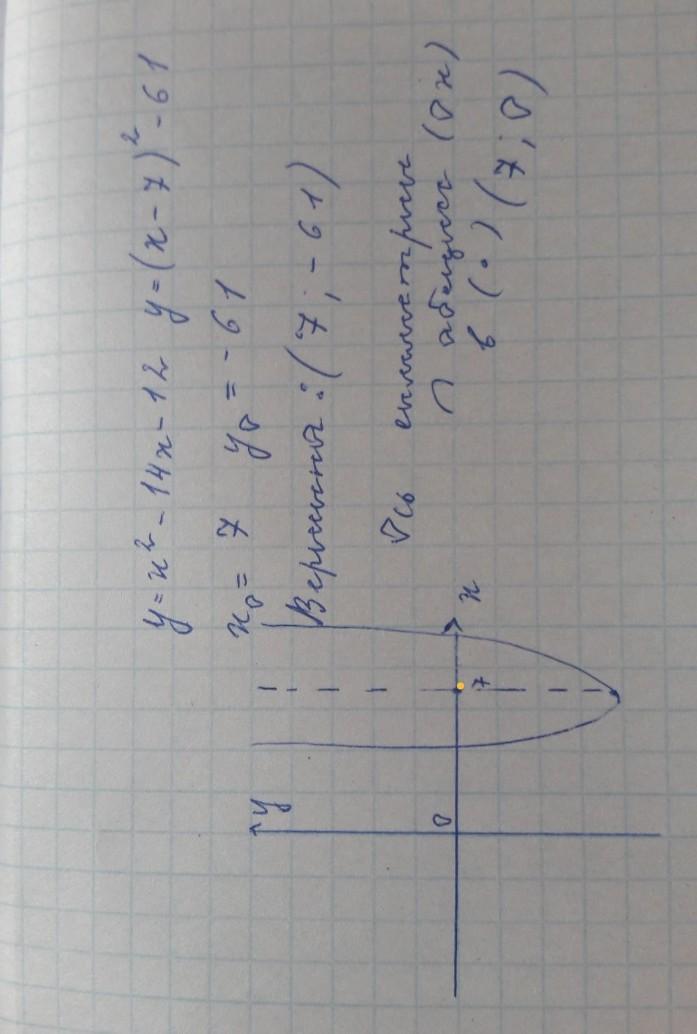 y=x²-14x-12 y=(x-7)²-61
x₀=7 y₀=-61
Вершина: (7; -61)
Ось симметрии
∩ абсцисс (0x)
в (•) (7; 0)
y
0
7
x